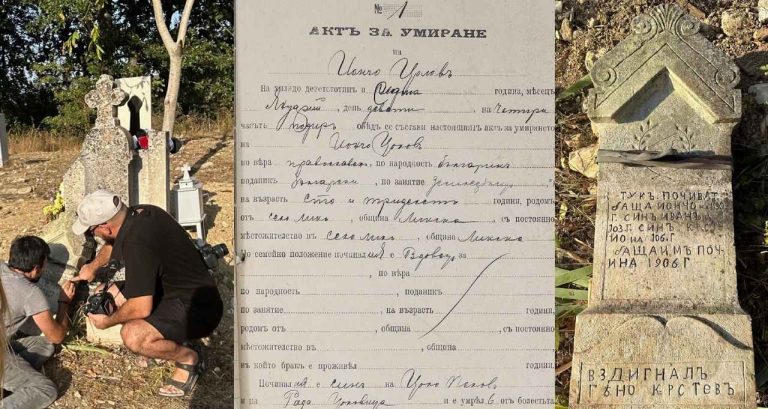 № 1
АКТЪ ЗА УМИРАНЕ
на
Йончо Цолов
На хилядо деветстотинъ и седма година, мѣсецъ
Януарий, день девети на четири
часътъ подиръ обѣдъ се състави настоящиятъ актъ за умирането
на Йончо Цоков
по вѣра православен, по народность българинъ
поданикъ български, по занятие земледѣлецъ
на възрасть сто и тридесеть години, родомъ
отъ село Лико, община с постоянно
мѣстожителство въ село Лико, община
По семейно положение починалия е вдовецъ за
, по вѣра
по народность, поданикъ
по занятие, на възрасть години
родомъ отъ, община, съ постоянно
мѣстожителство въ, община
въ който бракъ е проживѣл години.
Починалия е синъ на Цоко
и на Рада и е умрѣл отъ болестьта
ТУКЪ ПОЧИВАТ
БАЩА ЙОНЧО
Г. СИНЪ ИВАН
103 Г. СИН
106 Г
БАЩА ИМЪ ПОЧИ
НА 1906 Г
ВЗДИГНАЛ
ГѢНО КРСТЕВ